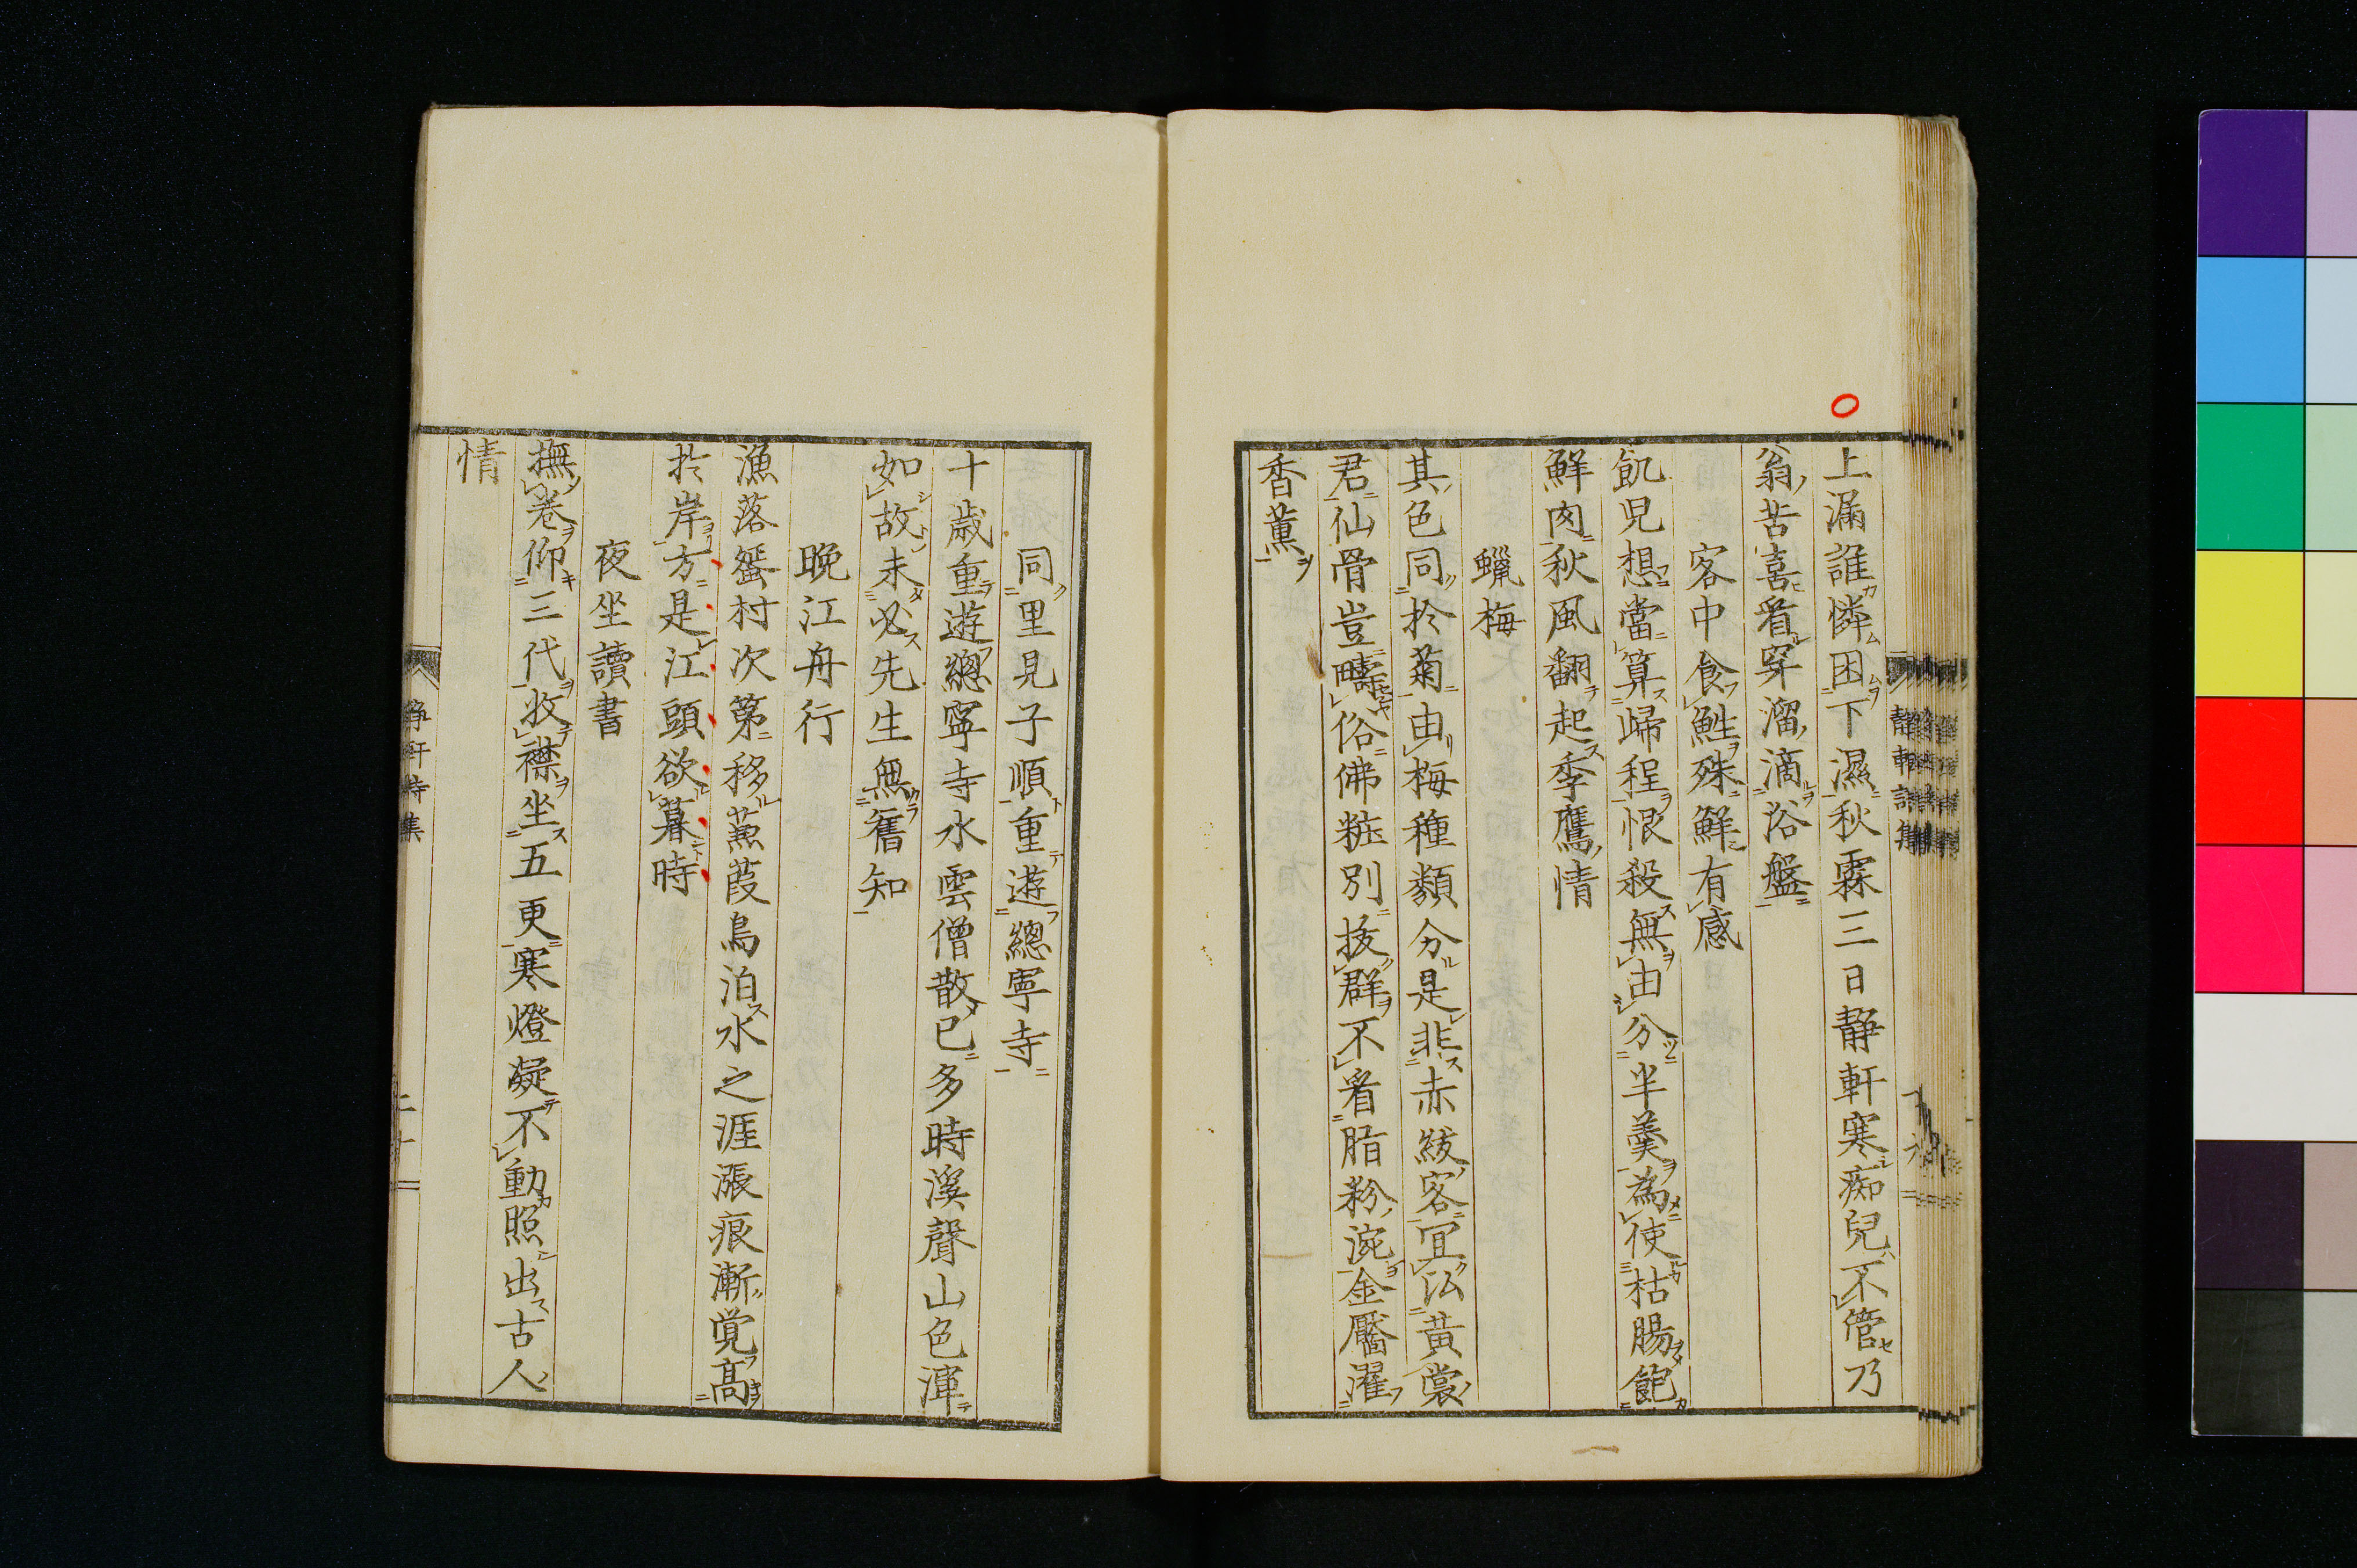 上漏誰憐困下濕秋霖三日静軒寒痴兒不管乃
翁苦喜看穿溜滴浴盤
客中食鮏殊鮮有感
飢児想當算歸程恨殺無由分半羹為使枯腸飽
鮮肉秋風翻起季鷹情
蠟梅
其色同於菊由梅種類分是非赤紱客冝沄黄裳
君仙骨豈疇俗佛粧別抜群不看脂粉涴金靨濯
香薫
同里見子順重遊總寧寺
十歳重遊總寧寺水雲僧散已多時溪聲山色渾
如故未必先生無舊知
晩江舟行
漁落蜑村次第移蒹葭鳥泊水之涯漲痕漸覚髙
於岸方是江頭欲暮時
夜坐讀書
撫卷仰三代收襟坐五更寒燈凝不動照出古人
情
静軒詩集
二十